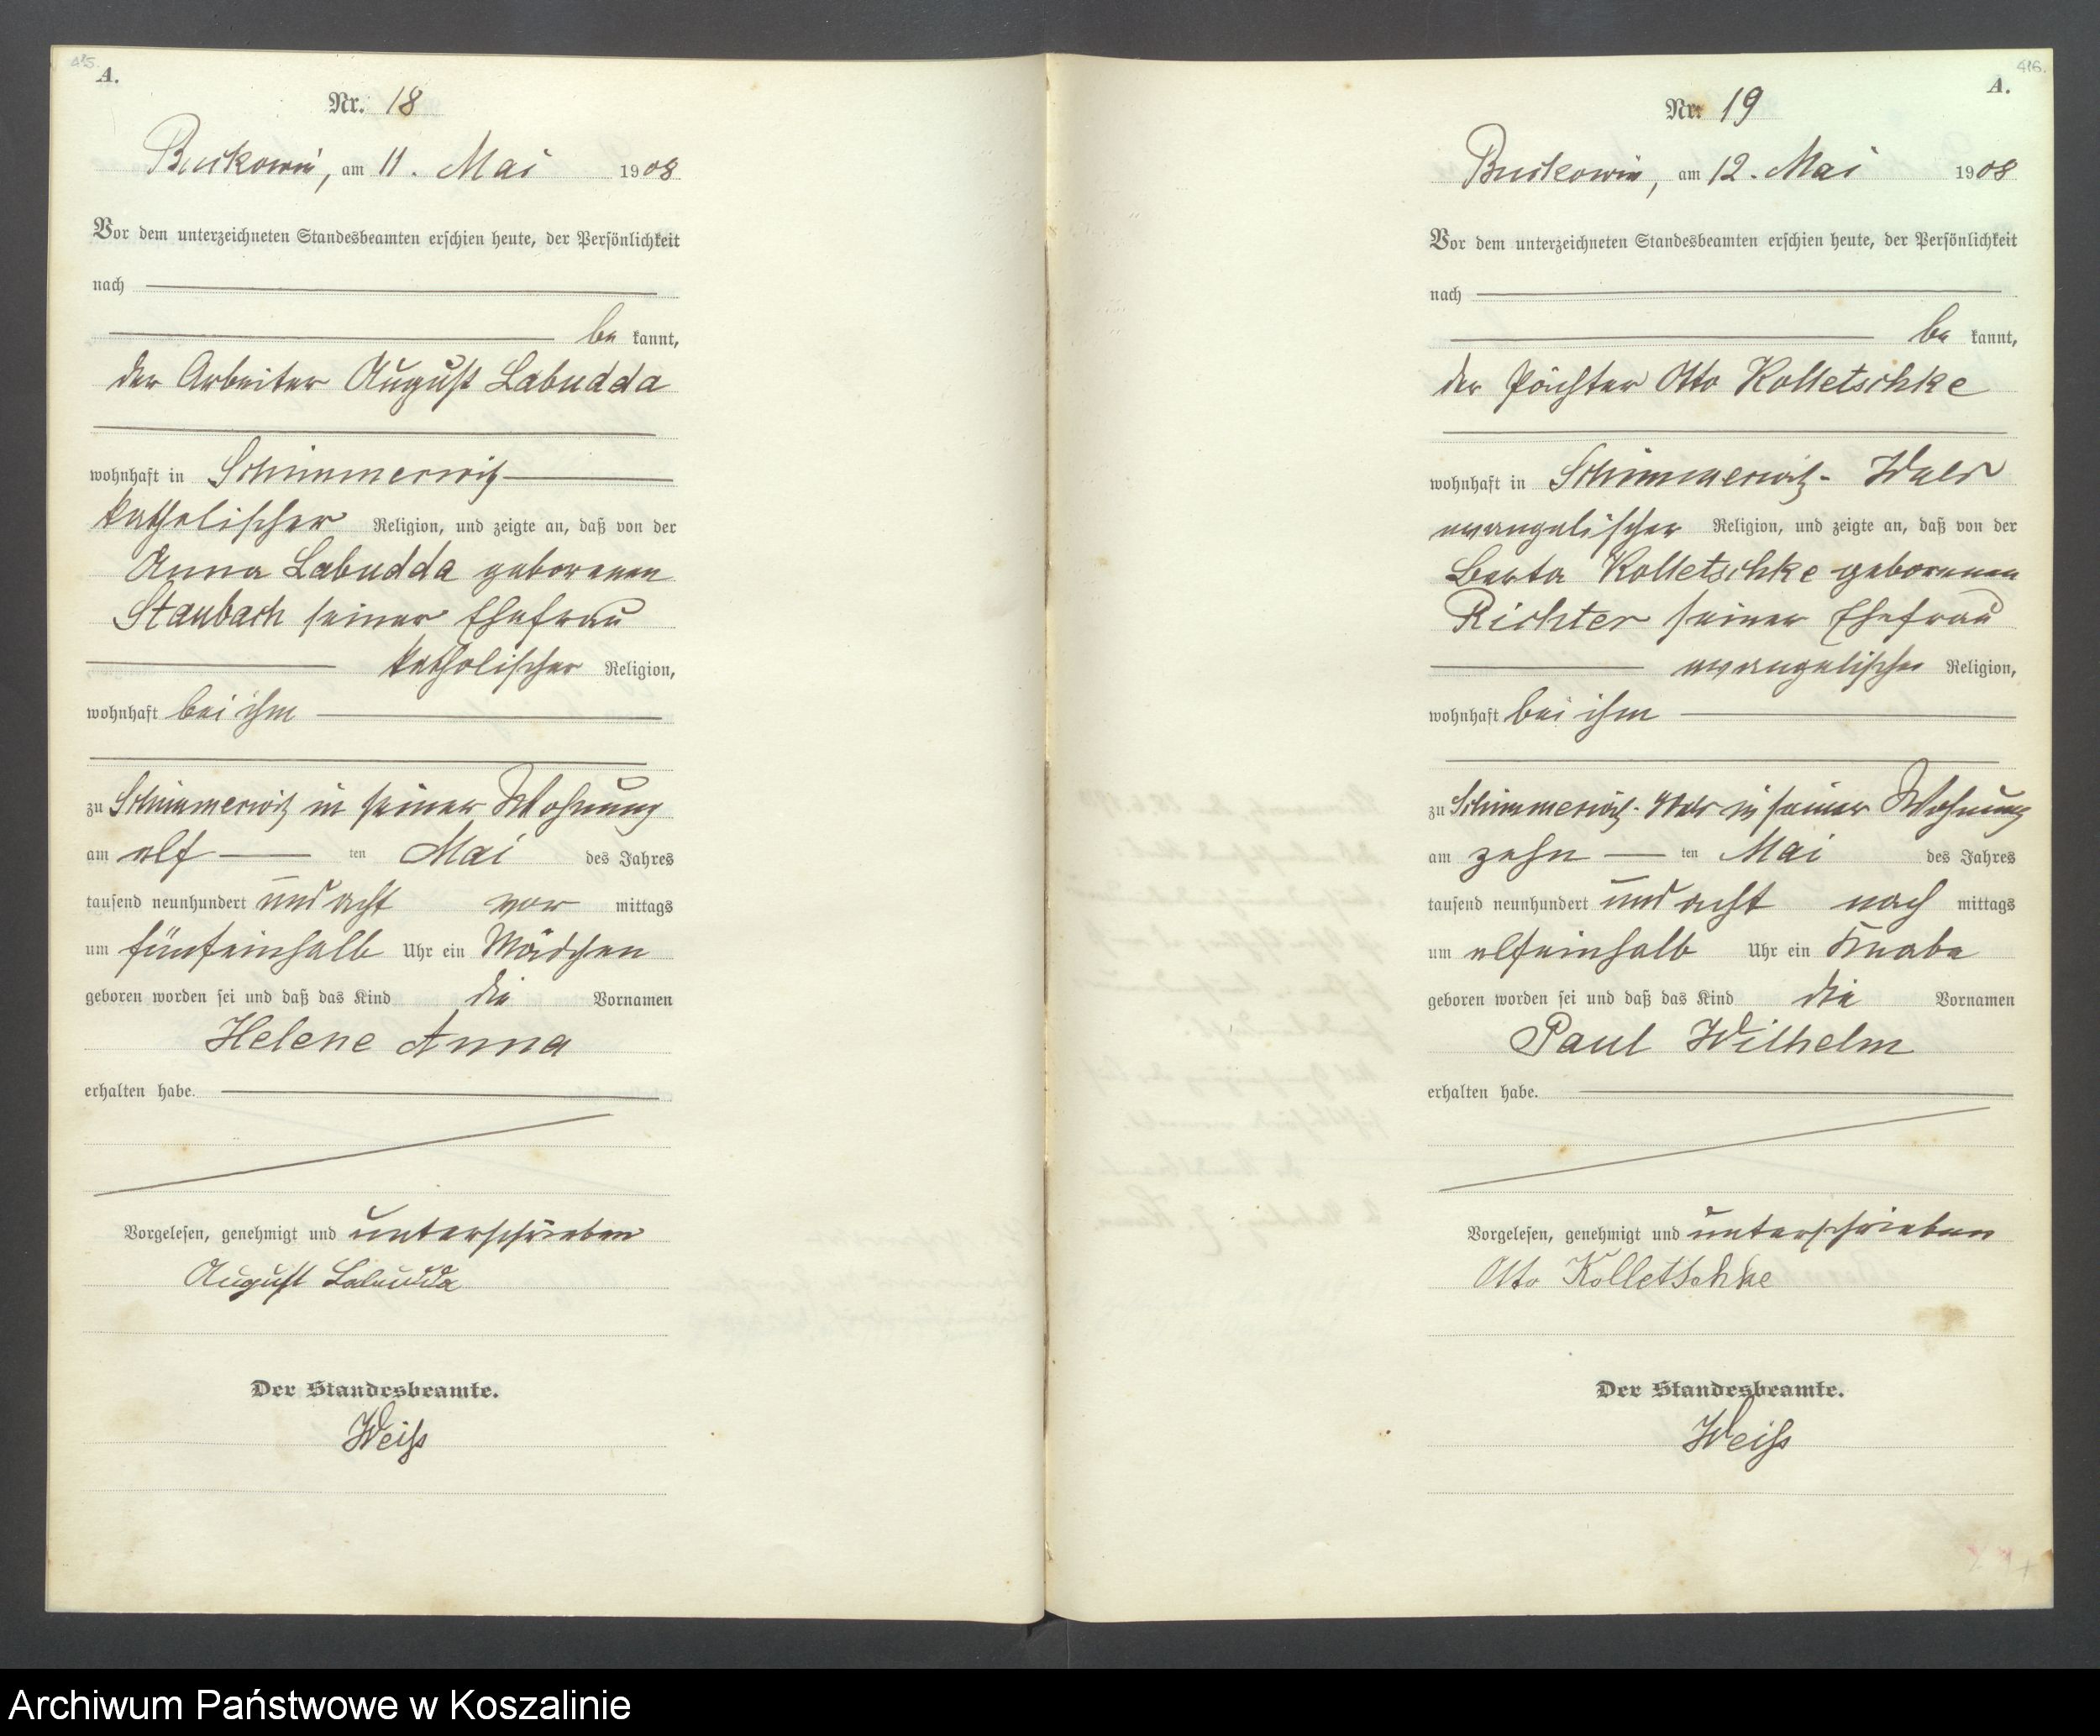 415.
A.
Nr. 18
Buckowin, am 11. Mai 1908
Vor dem unterzeichneten Standesbeamten erschien heute, der Persönlichkeit
nach
be kannt,
der Arbeiter August Labudda
wohnhaft in Schimmerwitz
katholischer Religion, und zeigte an, daß von der
Anna Labudda geborenen
Staubach seiner Ehefrau
katholischer Religion,
wohnhaft bei ihm
zu Schimmerwitz in seiner Wohnung
am elf ten Mai des Jahres
tausend neunhundert und acht vor mittags
um fünfeinhalb Uhr ein Mädchen
geboren worden sei und daß das Kind die Vornamen
Helene Anna
erhalten habe.
Vorgelesen, genehmigt und unterschrieben
August Labudda
Der Standesbeamte.
Weiß
416.
A.
Nr. 19
Buckowin, am 12. Mai 1908
Vor dem unterzeichneten Standesbeamten erschien heute, der Persönlichkeit
nach
be kannt,
der Pächter Otto Kolletschke
wohnhaft in Schimmerwitz-Wald
evangelischer Religion, und zeigte an, daß von der
Berta Kolletschke geborenen
Richter seiner Ehefrau
evangelischer Religion,
wohnhaft bei ihm
zu Schimmerwitz-Wald in seiner Wohnung
am zehn ten Mai des Jahres
tausend neunhundert und acht nach mittags
um elfeinhalb Uhr ein Knabe
geboren worden sei und daß das Kind die Vornamen
Paul Wilhelm
erhalten habe.
Vorgelesen, genehmigt und unterschrieben
Otto Kolletschke
Der Standesbeamte.
Weiß
Archiwum Państwowe w Koszalinie